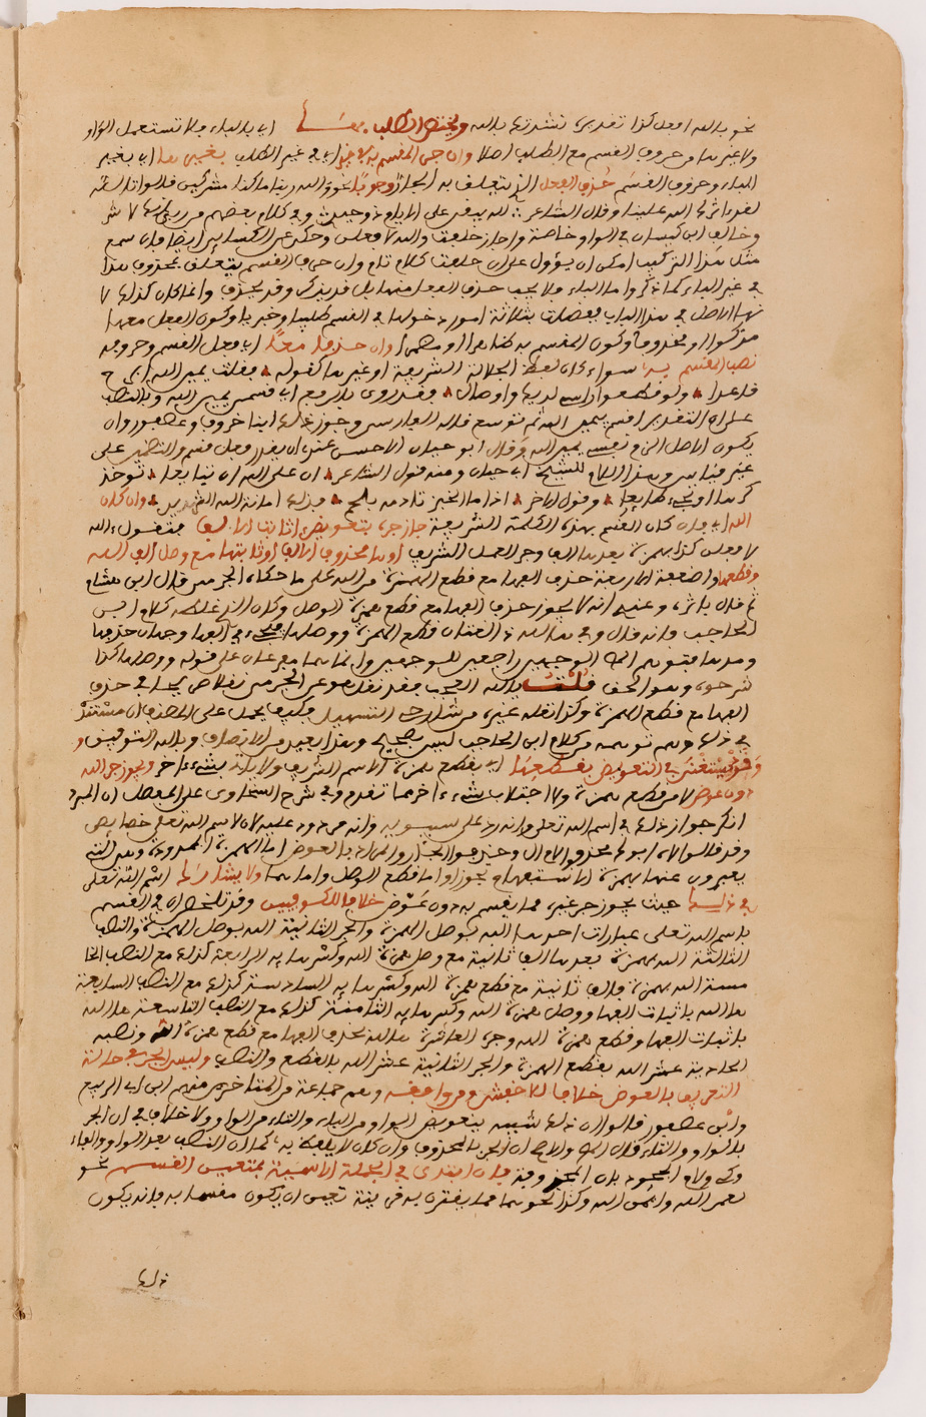 نحو بالله افعل كذا تقديره نشدتك بالله ويختص الطلب بهـا اي بالباء فلا تستعمل الواو
ولا غيرها من حروف القسم مع الطلب اصلا وان جي المقسم به لا خبرا اي في غير الطلب بغيرها اي بغير
الباء من حروف القسم حذف الفعل الذي يتعلق به الجار وجوبا نحو والله ربنا ما كنا مشركين قالوا تالله
لقد اثرك الله علينا وقال الشاعر لله يبقى على الايام ذو حيد وفي كلام بعضهم من ربي لا
وخالف ابن كيسان في الواو خاصة واجاز حلفت والله لافعلن وحكى عن الكسائي ايضا فان سمع
مثل هذا التركيب امكن ان يؤول على ان حلفت كلام تام وان حرف القسم يتعلق بمحذوف هذا
في غير الباء كما ذكر واما الباء فلا يجب حذف الفعل معها بل قد يذكر وقد يحذف وانما كان كذلك لا
نها الاصل في هذا الباب ففضلت بثلاثة امور دخولها في القسم طلبا وخبرا وكون الفعل معها
مذكورا او محذوفا وكون المقسم به ظاهرا او مضمرا وان حذفا معا اي فعل القسم وحرفه
نصب المقسم به سواء كان لفظ الجلالة الشريفة او غيرها كقوله فقلت يمين الله ابرح
قاعدا ولو قطعوا راسي لديك واوصالي فقد روي بالرفع اي قسمي يمين الله وبالنصب
على ان التقدير اقسم بيمين الله ثم توسع قاله الفارسي وجوز ذلك ابنا خروف وعصفور وان
يكون الاصل الزم نفسي يمين الله وقال ابو حيان الاحسن عندي ان يقدر فعل قسم والتضمين على
غير قياس وهذا الكلام للشيخ ابي حيان ومنه قول الشاعر ان علي الله ان تبايعا تؤخذ
كرها او تجيء طايعا وقول الاخر اذا ما الخبز تادمه بلحم فذاك امانة الله الثريد وان كان
الله اي فان كان القسم بهذه الكلمة الشريفة جاز جره بتعويض اثابت الالف فتقول ءالله
لافعلن كذا بهمزة بعدها الف وجر العمل الشريف او ها محذوف الالف او ثابتها مع وصل الف الله
وقطعها واضعف الاربعة حذف الفها مع قطع الهمزة من الله على ما حكاه الجرمي قال ابن هشام
وعندي انه لا يجوز حذف الفها مع قطع همزة الوصل وكان الذي غلطه كلام ابن
الحاجب فانه قال وفي ها الله لغتان قطع الهمزة ووصلها فيجيء في الفها وجهان حذفها
ومدها فتوهم الوجهين راجعين للوجهين وانما هما مفرعان على قوله ووصلها كذا
شرحوه وهو الحق قلت يالله العجب فقد نقل هو عن الجرمي نقلا في حذف
الفها مع قطع الهمزة وكذا نقله غيره من شارحي التسهيل فكيف يحمل على المصنف ان مستنده
في ذلك وهم توهمه من كلام ابن الحاجب ليس بصحيح وهذا بعيد من الانصاف وبالله التوفيق
وقد يستغنى في التعويض بقطعها اي بقطع همزة الاسم الشريف ولا يؤتى بشيء اخر ويجوز جر الله
دون عوض لا من قطع همزة ولا اجتلاب شيء اخر مما تقدم وفي شرح السخاوي على المفصل ان المبرد
انكر جواز ذلك في اسم الله تعالى وانه رد على سيبويه وانه مردود عليه لان لاسم الله تعالى خصايص
يعبرون عنها بهمزة الاستفهام تجوزا واما قطع الوصل واما ها ولا يشارك اسم الله تعالى
في ذلك حيث يجوز جر غيره مما يقسم به دون عوض خلافا للكوفيين وقد تلخص ان في القسم
باسم الله تعالى عبارات احدها الله بوصل الهمزة والجر الثانية الله بوصل الهمزة والنصب
الثالثة الله بهمزة بعدها الف ثانية مع وصل همزة الله وكسر هايه الرابعة كذلك مع النصب الخا
مسة الله بهمزة فالف ثانية مع قطع همزة الله وكسر هايه السادسة كذلك مع النصب السابعة
ها الله باثبات الفها ووصل همزة الله وكسر هايه الثامنة كذلك مع النصب التاسعة ها الله
باثبات الفها وقطع همزة الله وجره العاشرة هالله بحذف الفها مع قطع همزة الله ونصبه
الحادية عشر الله بقطع الهمزة والجر الثانية عشر الله بالقطع والنصب وليس الجر في حالة
التعريف بالعوض خلافا للاخفش ومن وافقه وهم جماعة من المتاخرين منهم ابن ابي الربيع
وابن عصفور قالوا ان ذلك شبيه بتعويض الواو من الباء والتاء من الواو ولا خلاف في ان الجر
بالواو والتاء فكان والاصح ان الجر بالمحذوف وان كان لا يلفظ به كما ان النصب بعد الواو والفاء
وكي ولام الجحود بان المحذوفة فان ابتدى في الجملة الاسمية بمتعين القسم نحو
لعمر الله وايمن الله وكذا نحوهما مما يقترن به قرينة تعين ان يكون مقسما به فانه يكون
ذلك